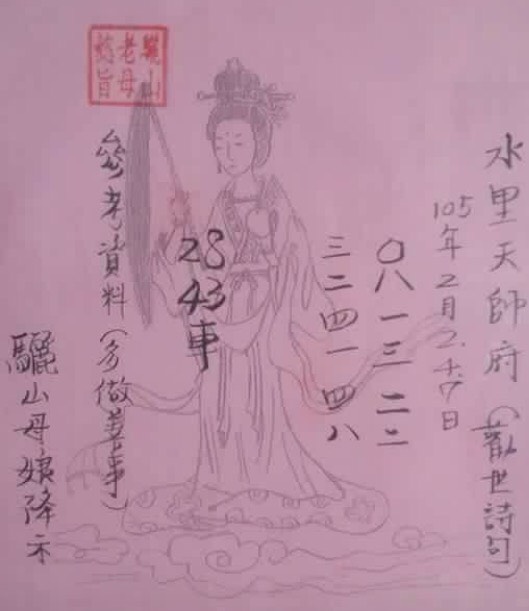 水里天師府(勸世詩句)
105年2月2.4.7日
〇八一三二二
三二四一四八
28
43
車
參考資料(多做善事)
驪山母娘降示
驪山
老母
懿旨